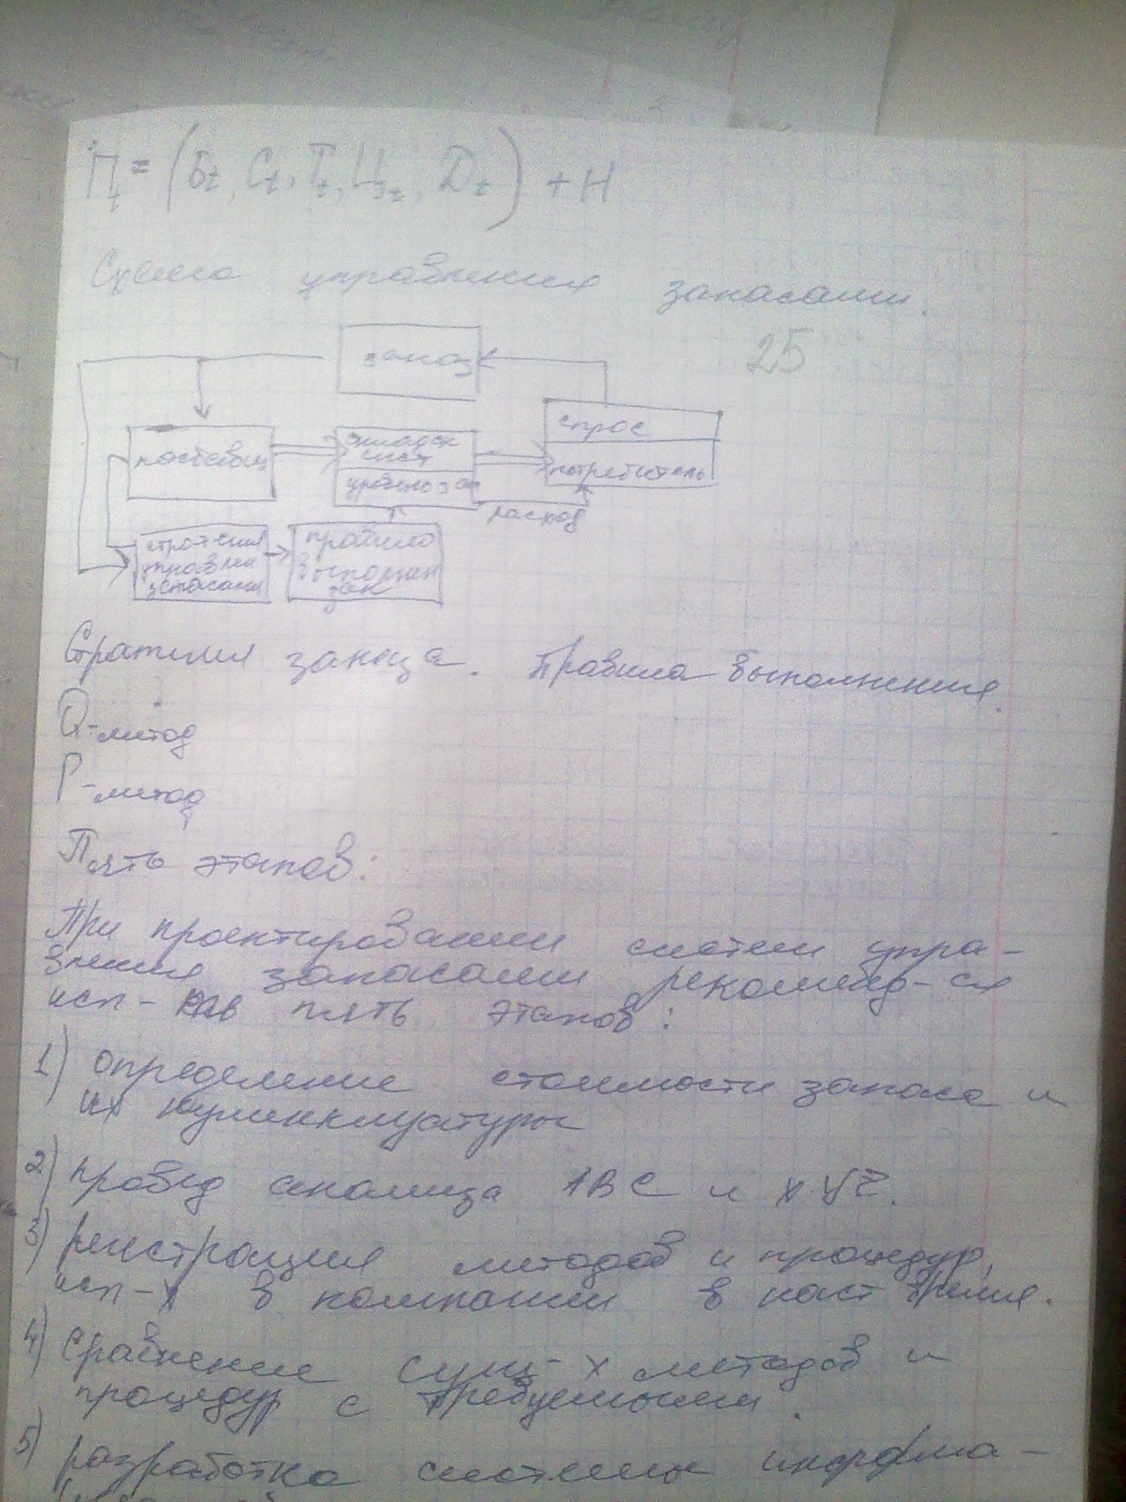 Пt = (Бt, Ct, Tt, Цзt, Dt) + H
Схема управления запасами.
25
заказ
поставщ
складск
сист
уровни зап
спрос
потребитель
расход
стратегия
управлен
запасами
правило
выполнен
зак
Стратегия заказа. Правила выполнения.
Q-метод
P-метод
Пять этапов:
При проектировании систем упра-
вления запасами рекоменд-ся
исп- пять этапов:
1) определение стоимости запаса и
их номенклуатуры
2) провед анализа ABC и XYZ.
3) регистрация методов и процедур,
исп-х в компании в наст время.
4) сравнение сущ-х методов и
процедур с требуемыми.
5) разработка системы информа-